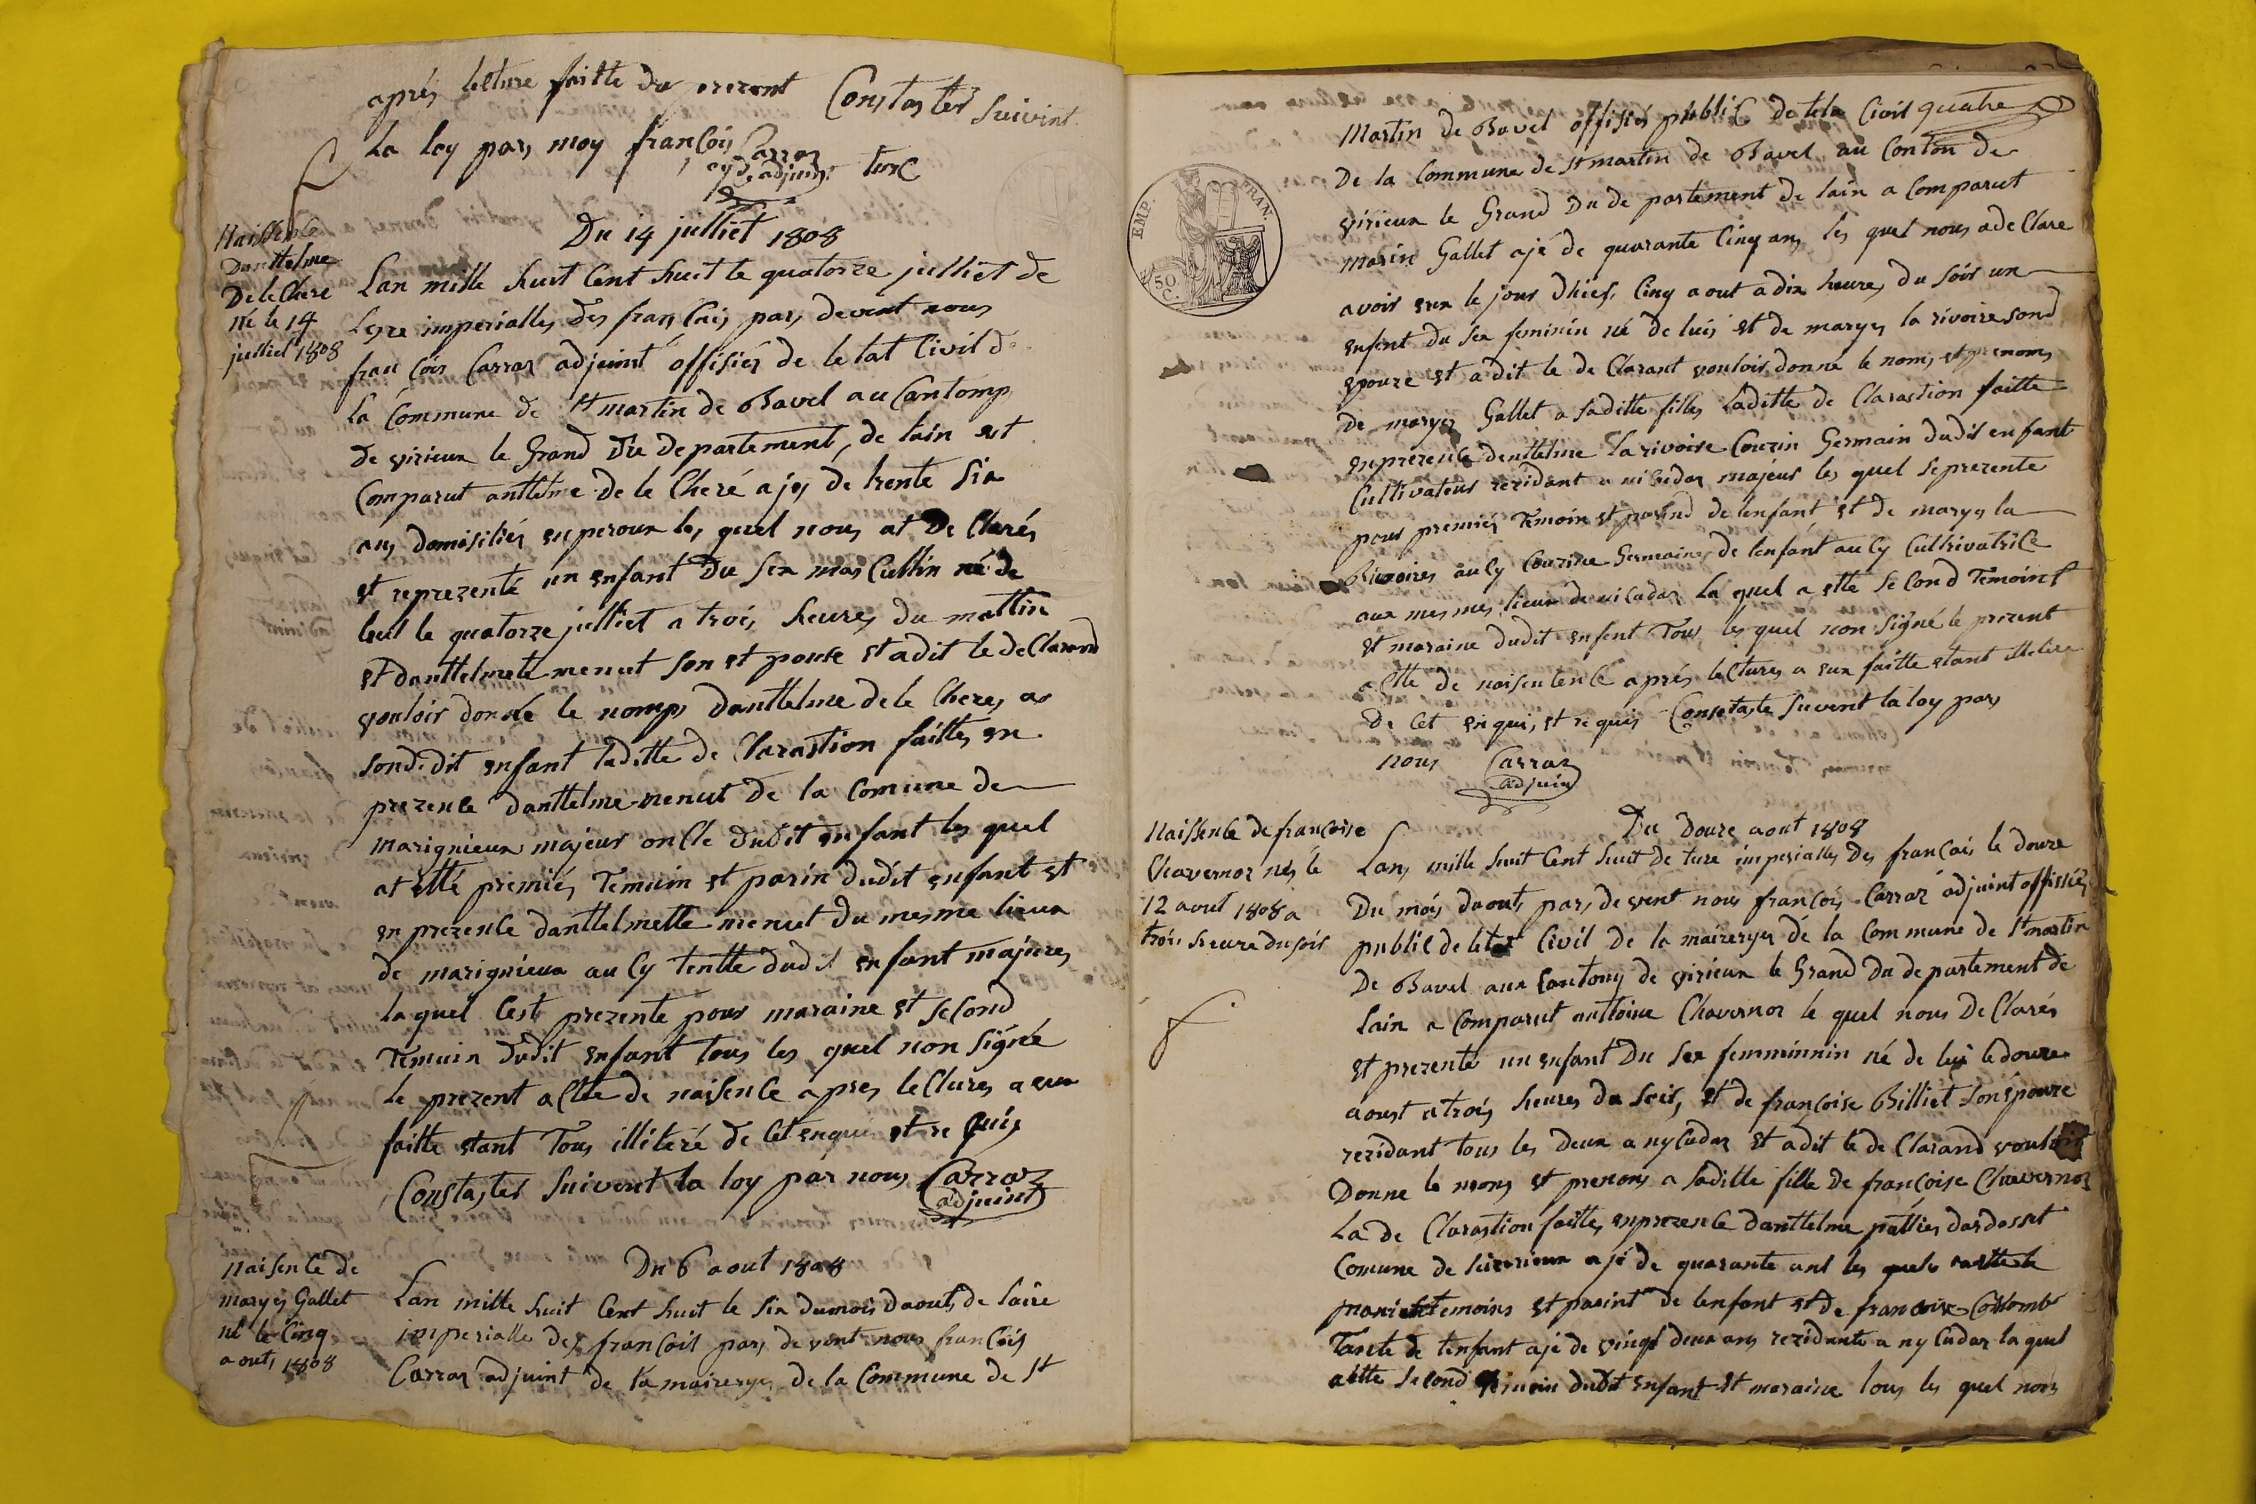 aprés lecture faitte du prezent Constaster Suivint
La loy pars moy françois Carraz
adjuint
Du 14 julliet 1808
Naissence
Danthelme
De le Chere
né le 14
julliet 1808
Lan mille huit Cent huit le quatorze julliet de
Lere imperialles des français pars devent nous
françois Carraz adjuint offisiér de le tat Civil d
La Commune de St martin de Bavel au Cantomp
de virieux le Grand Du Departement, de lain est
Comparut anthelme de le Cheré ajes de trente Six
ans domisiliés en peroux les quel nous at De Clarés
et reprezenté un enfant Du Sex mas Cullin né de
luit le quatorze julliet a trois heures du mattin
et danthelmete menut son et pouse et a dit le de Clarand
vouloir donné le nomps Danthelme de le Cheres a
sond. dit enfant laditte de Clarastion faittes en
prezence danthelme menut De la Comune de
marignieux majeur on Cle dudit enfant les quel
at etté premiés Temuin et parin dudit enfant et
en prezence danthelmette menut du mesme lieux
de marignieux au Cy tentte dudit enfant majures
laquel Cest prezente pour maraine et second
Temuin dudit enfant tous les quel non Signé
le prezent a Cte de naisence apres leClures a eux
faitte etant Tous illiteré de Cet enqui et re quis
Constaster Suivent la loy par nous Carraz
adjuint
Naisence de
maryes Gallet
né le Cinq
aout, 1808
Du 6 aout 1808
Lan mille huit Cent huit le Six dumois Daouts de laire
imperialle des françois pars de vent nous françois
Carraz adjuint de la maireryes de la Commune de St
Martin de Bavel offisiér publiC de teta Civil quatre
De la Commune de St martin de Bavel au Conton de
virieux le Grand Du de partement de lain a Comparut
marin Gallet ajé de quarante Cinq ans les quel nous a de Clare
avoir eux le jour Dhier, Cinq aout a dix heures du Soir un
enfent du Sex feminin né de luis et de maryes la rivoire sond
epouze et a dit le de Clarant vouloir donné le noms et prenoms
De maryes Gallet a saditte filles laditte de Clarastion faitte
enprézence denthelme Larivoire Couzin Germain dudit enfant
Cultivateur rezidant a niCudaz majeur les quel seprezente
pour premiés Temoin et parind de lenfant et de maryes la
Rivoires auCy Couzine Germaines de lenfant auCy CultrivatriCe
aux mesmes lieux de niCudaz La quel a ette Se Cond Temoins
et maraine dudit enfent Tous les quel non Signé le prezent
a Cte de naisentenCe aprés leCtures a eux faitte etant illetere
De Cet enqui, et re quis Constaste Suivent la loy pars
nous Carraz
adjuin
Naissence de francoise
Chavernoz nés le
12 aout 1808 a
trois heure du soir
Du Douze aout 1808
Lans mille huit Cent huit de ture imperialles Des françois le douze
Du mois daouts pars, de vent nous françois Carraz adjuint offisiér
publiC de letat Civil De la maireryes dé la Commune de St martin
De Bavel aux Cantong de virieux le Grand Du de partement de
Lain a Comparut anttoine Chavernoz le quel nous De Clarés
et prezenté un enfant Du Sex femminnin né de lui le douze
aoust a trois heures du Soir, et de françoise Billiet Son épouze
rezidant tous les deux a nyCudaz et a dit le de Clarand vouloir
Donne le noms et prenoms a saditte fille de françoise Chavernoz
La de Clarastion faittes enprezence danthelme pattiés dardosset
Comune de a jé de quarante ant les quels
Temoins et parint de lenfant et de francoise Collomb
Tante de lenfant ajé de vingt deux ans rezidante a nyCudaz la quel
a ette Second Temoin dudit enfant et maraine tous les quel nons